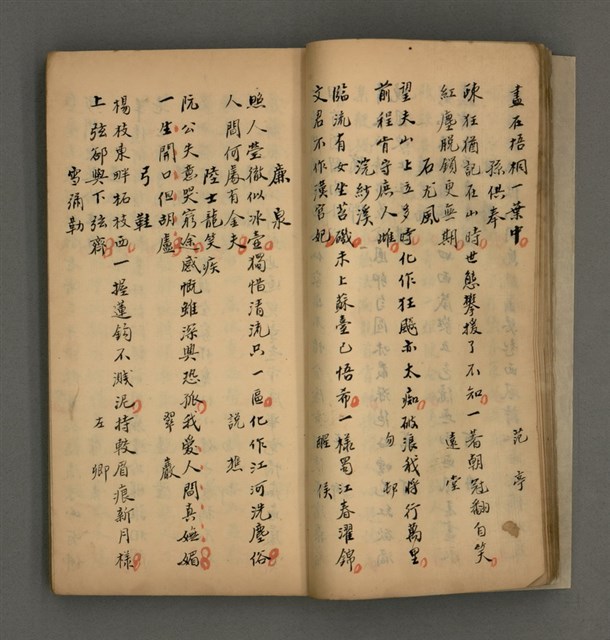 盡在梧桐一葉中　范亭
孫供奉
疎狂猶記在山時世態攀援了不知一著朝冠翻自笑
紅塵脫鎖更無期　遠堂
石尤風
望夫山上立多時化作狂飇亦太痴破浪我將行萬里
前程肯守庶人雌　自邨
浣紗溪
臨流有女坐苔磯未上蘇臺已悟希一樣蜀江春濯錦
文君不作漢宮妃　醒侯
廉泉
照人瑩徹似冰壺獨惜清流只一區化作江河洗塵俗
人間何處有金夫　說樵
陸士龍笑疾
阮公夫意哭窮余感慨雖深興恐孤我愛人間真嫵媚
一生開口但胡盧　翠巖
弓鞋
楊枝東畔柘枝西一握蓮鉤不濺泥持較眉痕新月樣
上弦郤與下弦齊　左卿
雪彌勒